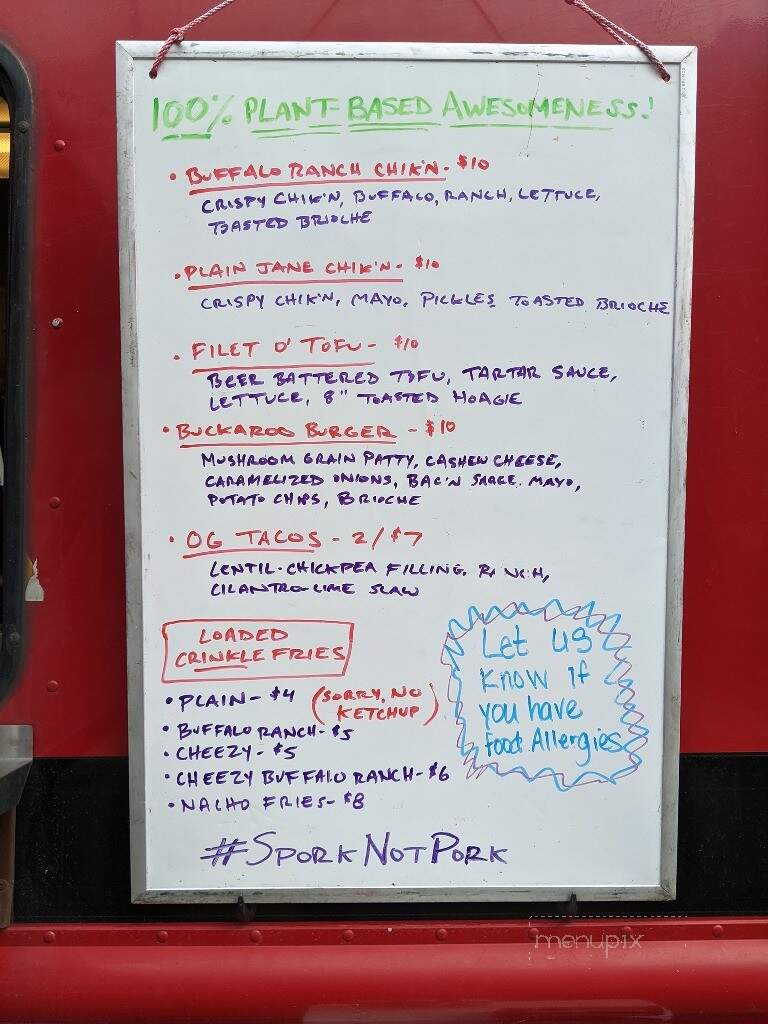 100% PLANT-BASED AWESOMENESS!
• BUFFALO RANCH CHIK'N - $10
CRISPY CHIK'N, BUFFALO, RANCH, LETTUCE,
TOASTED BRIOCHE
• PLAIN JANE CHIK'N - $10
CRISPY CHIK'N, MAYO, PICKLES TOASTED BRIOCHE
• FILET O' TOFU - $10
BEER BATTERED TOFU, TARTAR SAUCE,
LETTUCE, 8" TOASTED HOAGIE
• BUCKAROO BURGER - $10
MUSHROOM GRAIN PATTY, CASHEW CHEESE,
CARAMELIZED ONIONS, BAC'N SAUCE, MAYO,
POTATO CHIPS, BRIOCHE
• OG TACOS - 2/$7
LENTIL-CHICKPEA FILLING, RANCH,
CILANTRO-LIME SLAW
LOADED
CRINKLE FRIES
• PLAIN - $4 (SORRY, NO
KETCHUP)
• BUFFALO RANCH - $5
• CHEEZY - $5
• CHEEZY BUFFALO RANCH - $6
• NACHO FRIES - $8
Let us
know if
you have
food Allergies
#SPORKNOTPORK
menupix